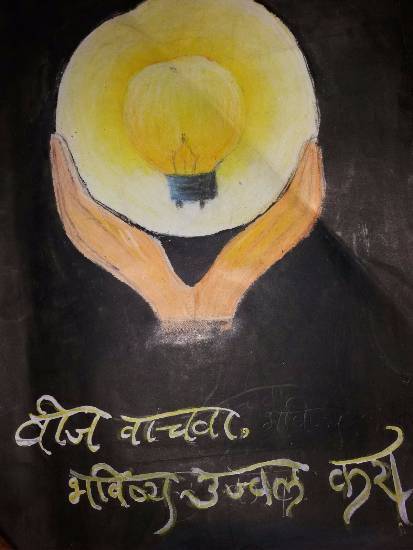 वीज वाचवा,
भविष्य उज्वल करा